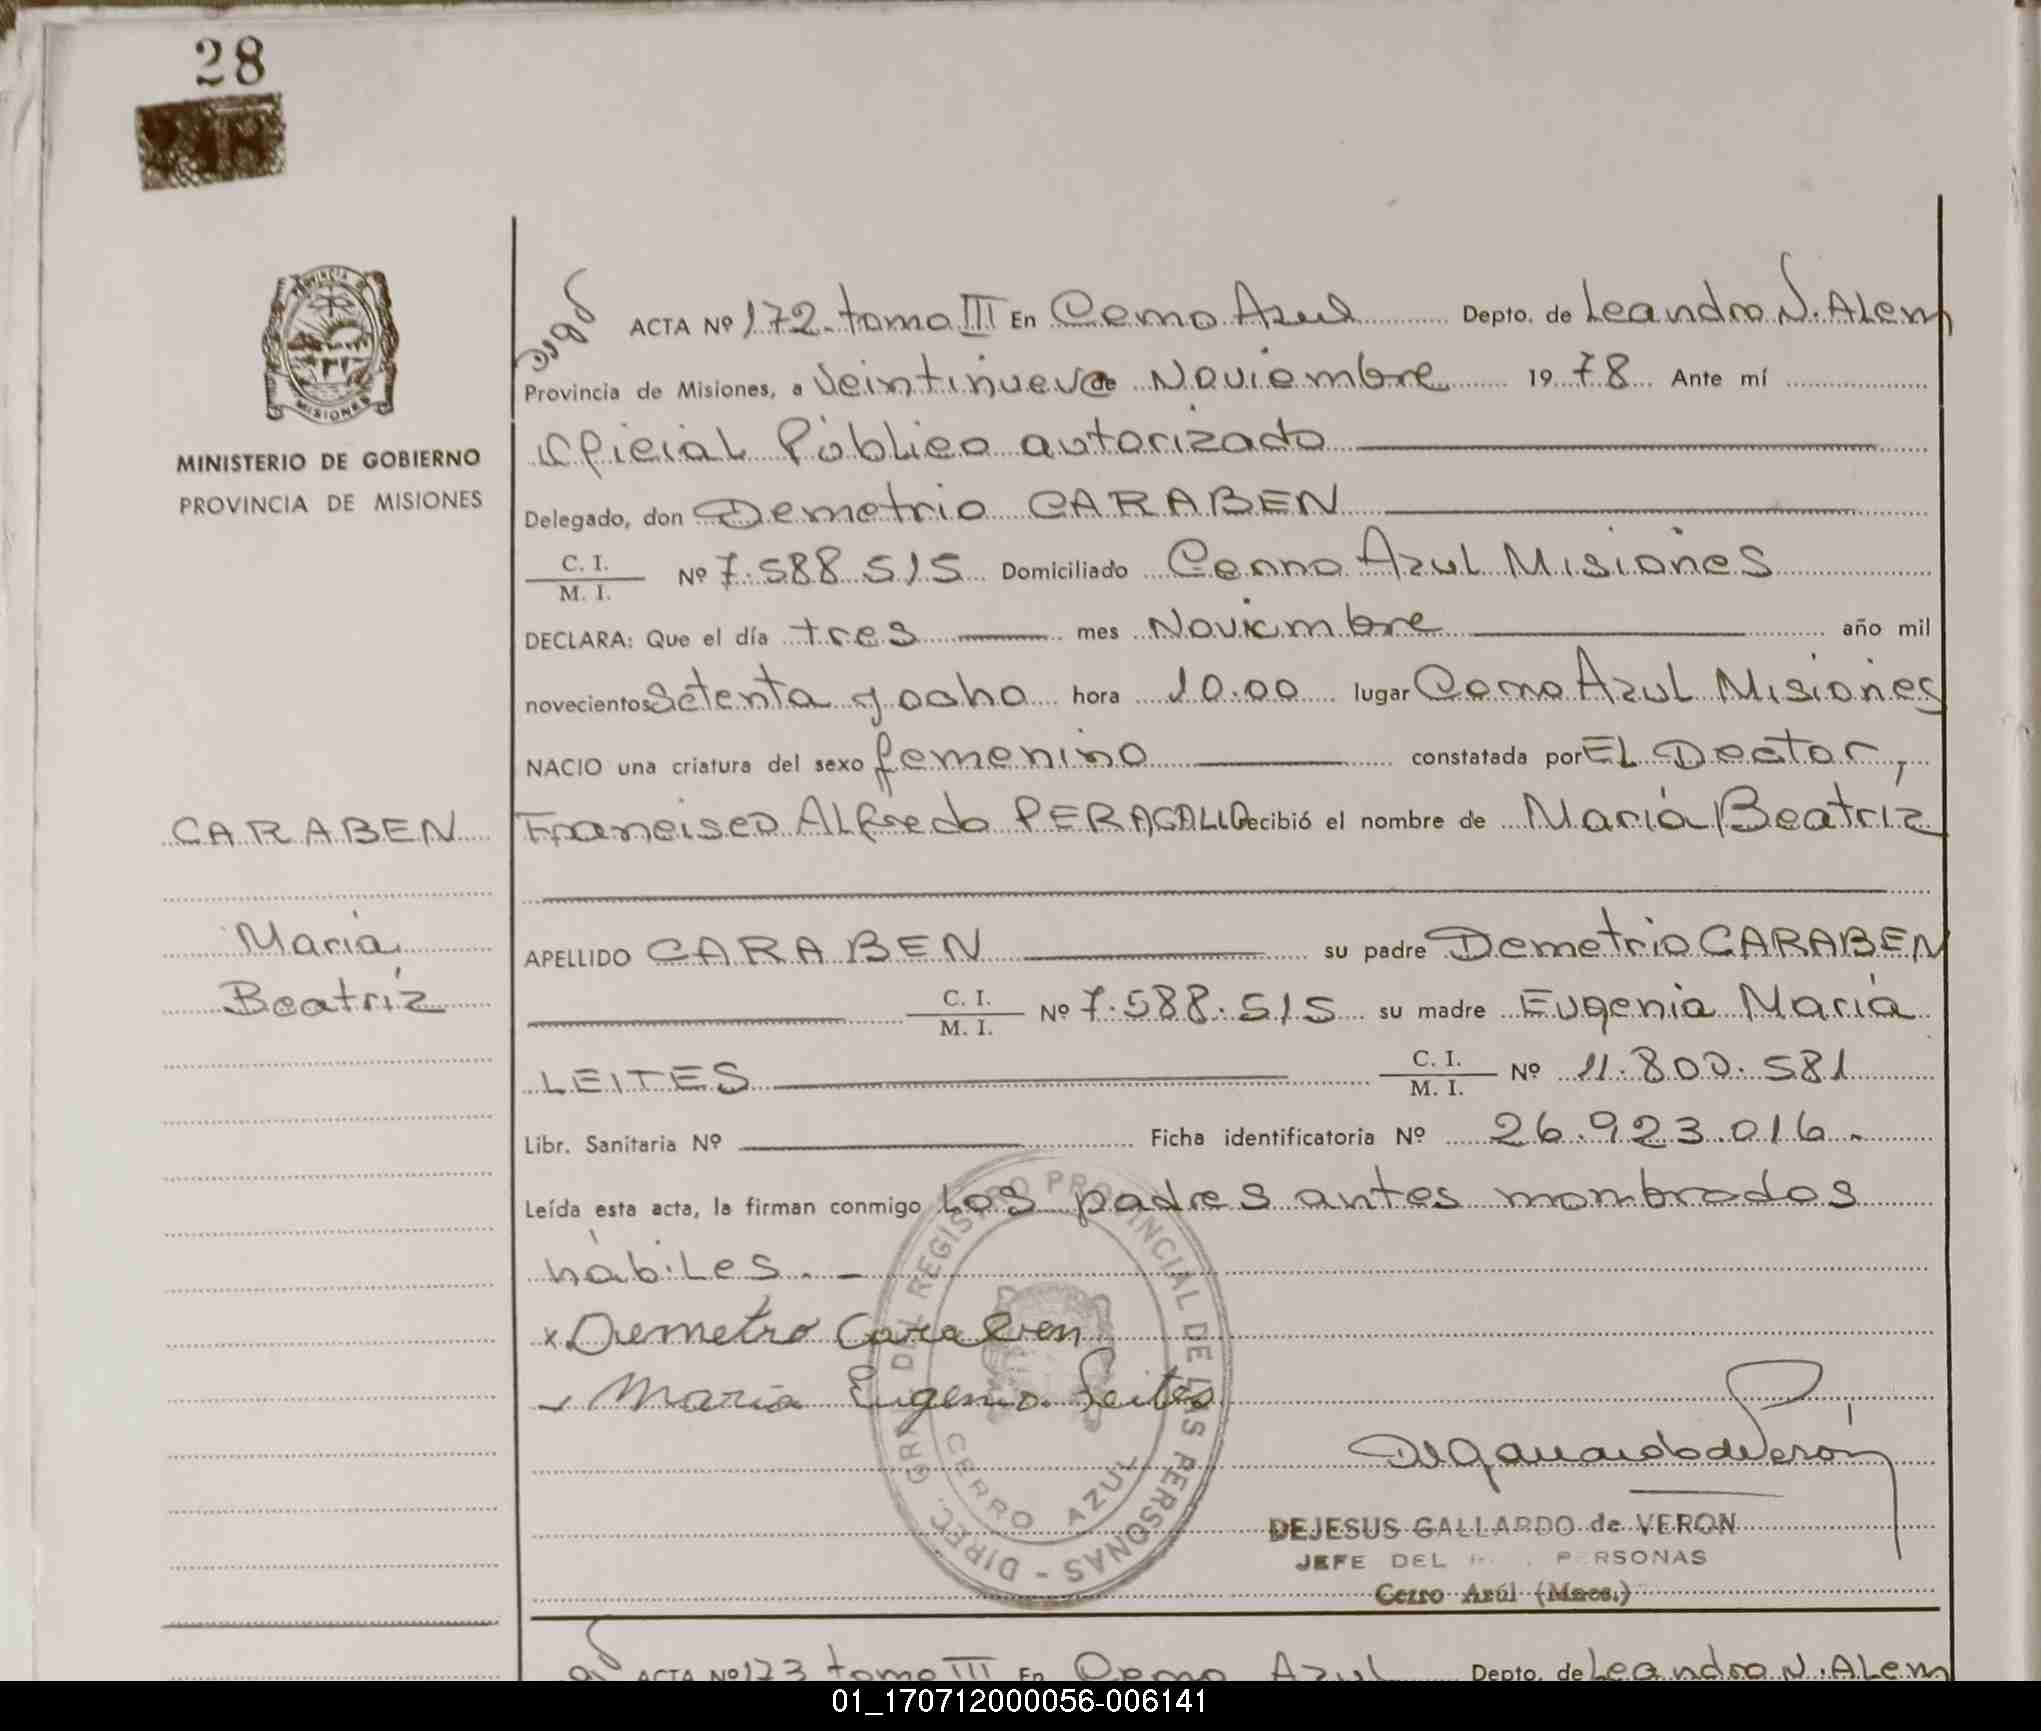 28
PROVINCIA DE
MISIONES
MINISTERIO DE GOBIERNO
PROVINCIA DE MISIONES
ACTA Nº 172. tomo III En Cerro Azul Depto. de Leandro N. ALem
Provincia de Misiones, a Veintinueve de Noviembre 1978 Ante mí
Oficial Público autorizado
Delegado, don Demetrio CARABEN
C. I.
M. I. Nº 7.588.515 Domiciliado Cerro Azul Misiones
DECLARA: Que el día tres mes Noviembre año mil
novecientos Setenta y ocho hora 10.00 lugar Cerro Azul Misiones
NACIO una criatura del sexo femenino constatada por EL Doctor,
CARABEN
Francisco ALfredo PERAGALLO Recibió el nombre de María Beatriz
María
Beatriz
APELLIDO CARABEN su padre Demetrio CARABEN
C. I.
M. I. Nº 7.588.515 su madre Eugenia María
LEITES C. I.
M. I. Nº 11.800.581
Libr. Sanitaria Nº Ficha identificatoria Nº 26.923.016.-
Leída esta acta, la firman conmigo Los padres antes nombrados
hábiles.-
x Demetrio Caraben
Maria Eugenia Leites
DIREC. GRAL DEL REGISTRO PROVINCIAL DE LAS PERSONAS -
CERRO AZUL
DEJESUS GALLARDO de VERON
JEFE DEL PERSONAS
Cerro Azúl (Mnes.)
ACTA Nº 173 tomo III En Cerro Azul Depto. de Leandro N. ALem
01_170712000056-006141